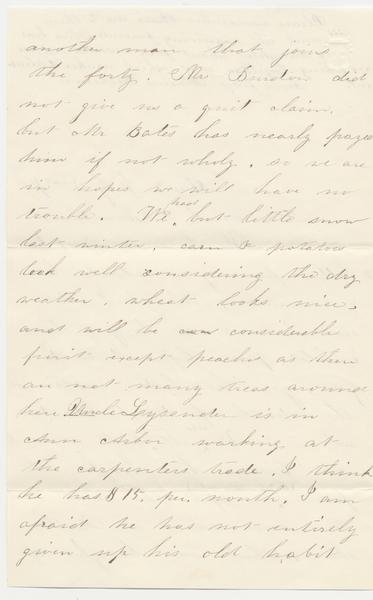 another man that joins
the forty. Mr Burdon did
not give us a quit claim,
but Mr Bates has nearly payed
him if not wholy, so we are
in hopes we will have no
trouble. We had but little snow
last winter, corn & potatoes
look well considering the dry
weather, wheat looks nice,
and will be considerable
fruit except peaches as there
are not many trees around
here Uncle Lysander is in
Ann Arbor working at
the carpenters trade. I think
he has $15. per. month. I am
afraid he has not entirely
given up his old habit